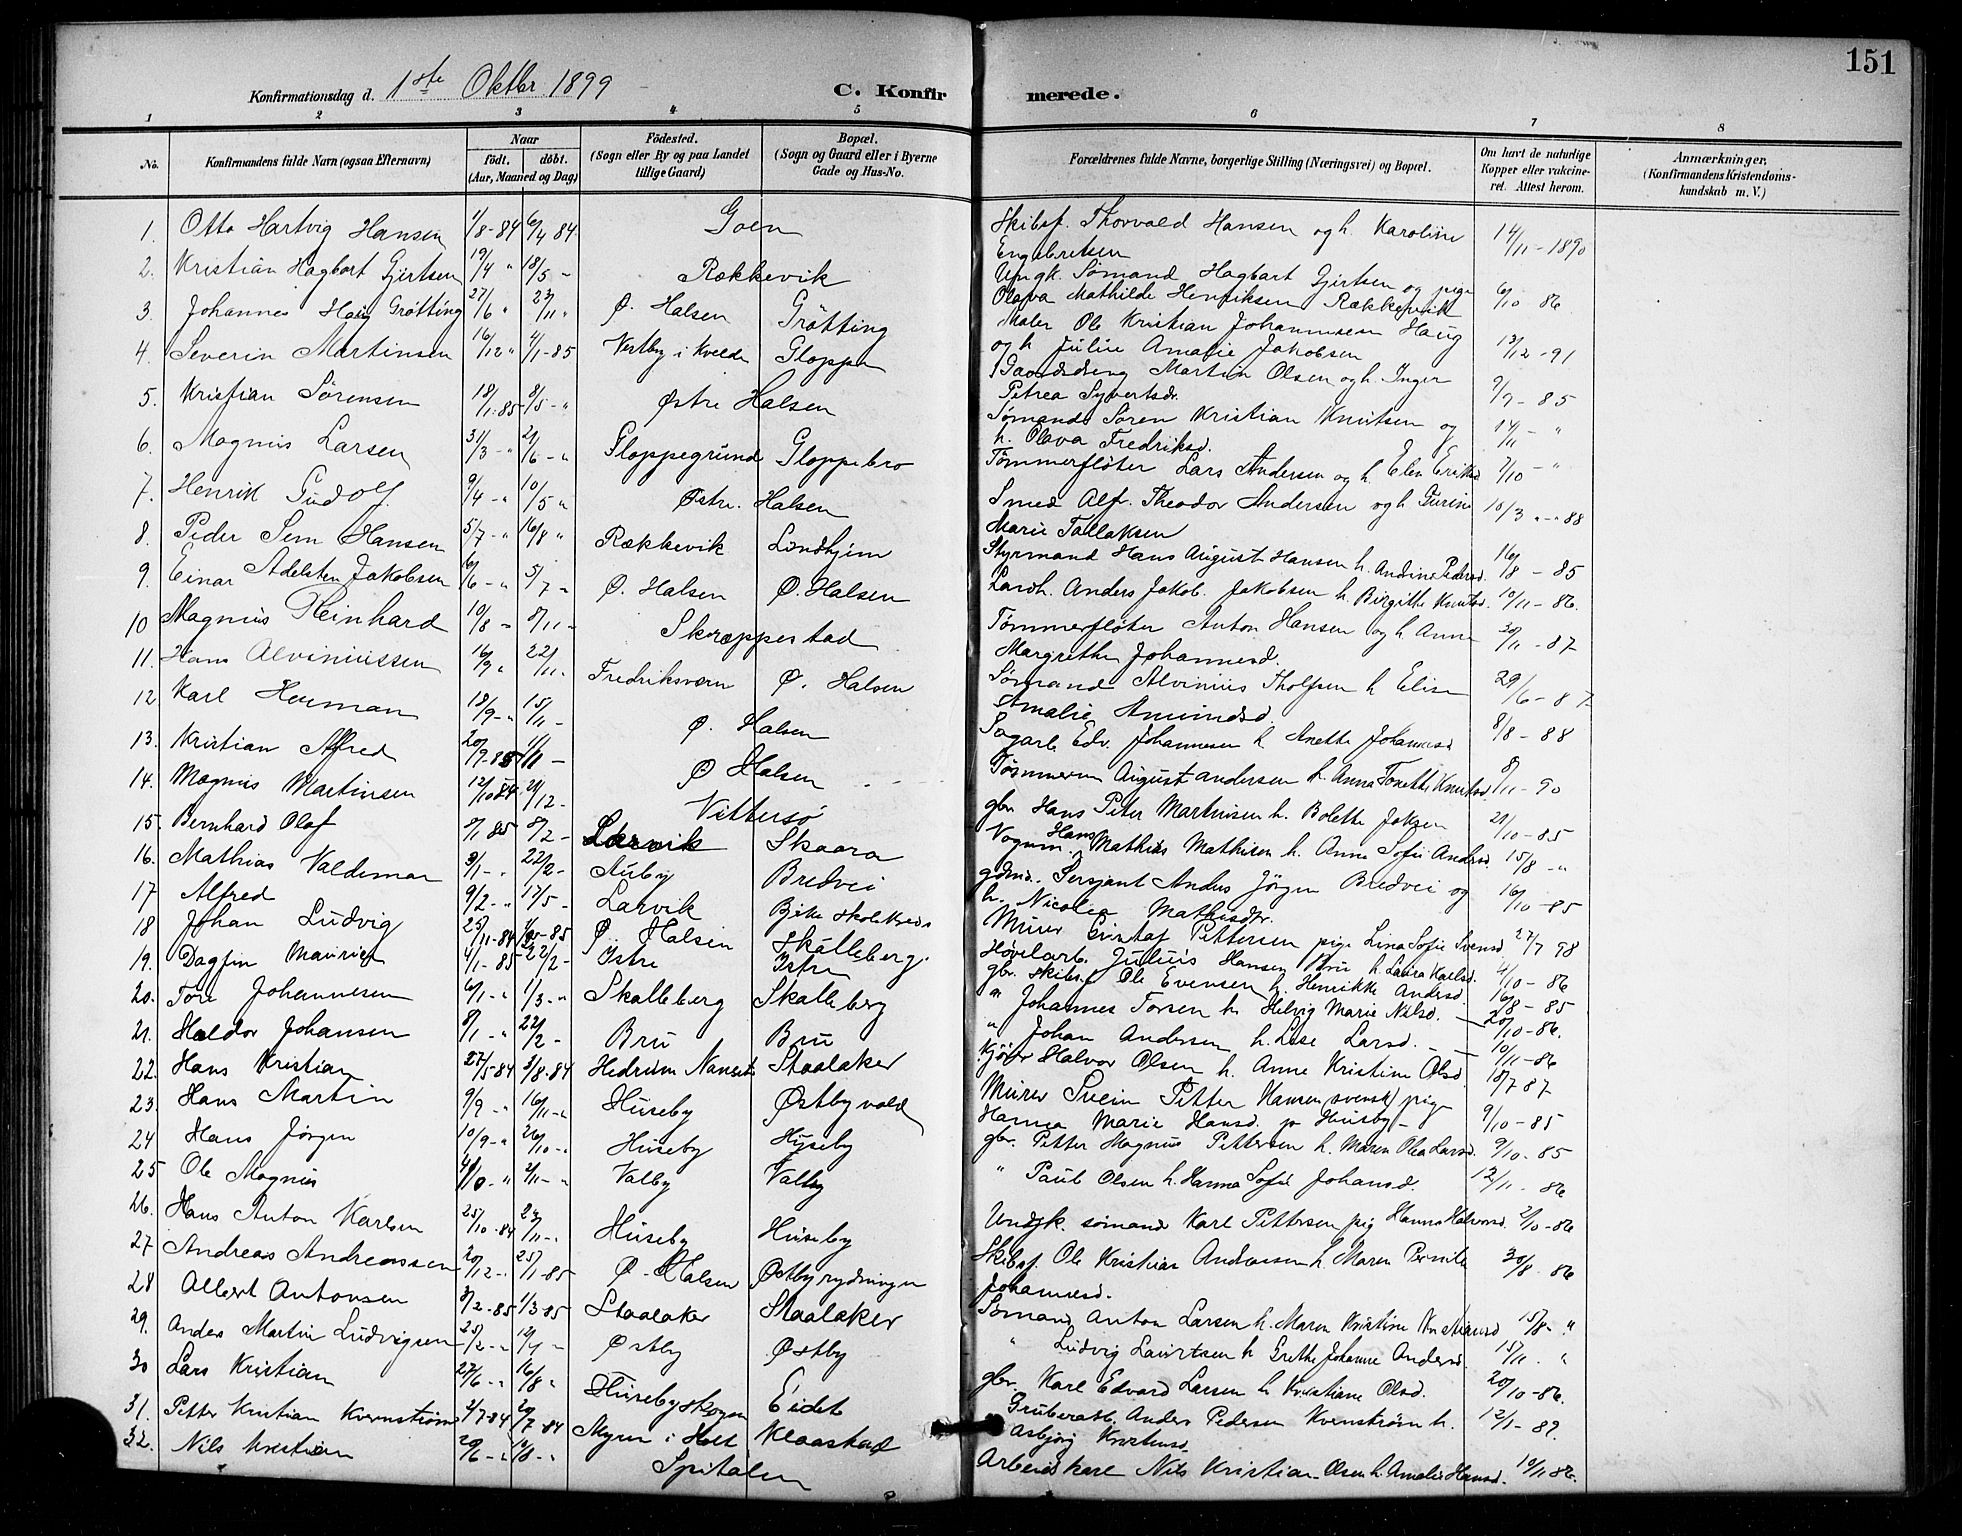 151
Konfirmationsdag d. 1ste Oktbr. 1899
C. Konfirmerede.
1 2 3 4 5 6 7 8
No. Konfirmandens fulde Navn (ogsaa Efternavn) Naar födt. döbt. (Aar, Maaned og Dag) Födested. (Sogn eller By og paa Landet tillige Gaard) Bopæl. (Sogn og Gaard eller i Byerne Gade og Hus-No. Forældrenes fulde Navne, borgerlige Stilling (Næringsvei) og Bopæl. Om havt de naturlige Kopper eller vakcineret. Attest herom. Anmærkninger, (Konfirmandens Kristendomskundskab m. V.)
1. Otto Hartvig Hansen 1/8-84 6/4 84 Goen Skibsf. Thorvald Hansen og h. Karoline Engebretsen 14/11-1890
2. Kristian Hagbart Gjertsen 19/4 " 18/5 - Rækkevik Ungk. Sømand Hagbart Gjertsen og pige Olava Mathilde Henriksen Rækkevik 6/10 86
3. Johannes Haug Grötting 27/6 " 23/11 " Ø. Halsen Grötting Maler Ole Kristian Johannesen Haug og h Julie Amalie Jakobsen 13/12-91
4. Severin Martinsen 16/12 " 4/1-85 Vestby i Kvelde Gloppen Gaardsdreng Martin Olsen og h. Inger Petrea Syvertsdr. 9/9-85
5. Kristian Sörensen 18/1-85 8/5-" Østre Halsen Sømand Soren Kristian Knutsen og h. Olava Fredriksd. 14/11-"
6. Magnus Larsen 31/3-" 21/6-" Gloppegrund Gloppebro Tømmerflöter Lars Andersen og h. Elen Eriksd 7/10-"
7. Henrik Gudolf 9/4-" 10/5 " Østre Halsen Smed Alf. Theodor Andersen og h Gurine Marie Tallaksen 10/3 "-"88
8. Peder Sem Hansen 5/7-" 16/8 " Rækkevik Lindhjem Styrmand Hans August Hansen h. Andine Pedersd. 16/8-85
9. Einar Adelsten Jakobsen 6/6-" 5/7- Ø. Halsen Ø. Halsen Lardh. Anders Jakob. Jakobsen h Birgithe Knutsd. 10/11-86.
10 Magnus Reinhard 10/8- 8/11- Skræppestad Tømmerflöter Anton Hansen og h. Anne Margrethe Johannesd. 30/11-87
11. Hans Alviniussen 16/9 " 22/11 Fredriksværn Ø. Halsen Sømand Alvinius Tholfsen h Elise Amalie Amundsd. 29/6-87
12 Karl Herman 13/9-" 15/11- Ø. Halsen Sagarb Edv. Johannesen h Anette Johannesd 8/8-88
13. Kristian Alfred 20/9-85 1/11- Ø Halsen Tømmerm August andersen h. Anna Tonette Knutsd 8/11-90
14. Magnus Martinsen 12/10 84 21/12- Vittersø gbr. Hans Peter Martinsen h. Bolette Jaksen 21/10-85
15. Bernhard Olaf 8/1 85 8/2- Larvik Skaara Vognm. Hans Mathias Mathisen h. Anne Sofie Andersd. 15/8-"
16. Mathias Valdemar 3/1-" 22/2- Auby Bredvei gdmd. Sersjant Anders Jörgen Bredvei og h. Nicolea Mathisdtr. 16/10-85
17 Alfred 9/2-" 17/5- Larvik Bjerke skolekreds Murer Gustaf Pettersen pige Lina Sofie Svensd 27/7 98
18 Johan Ludvig 25/11-84 1/-85 Ø. Halsen Skalleberg. Høvelarb. Julius Hansen h. Laura Karlsd. 4/10-86
19. Dagfin Mauritz 4/1-85 22/2- Istre Istre gbr. skibsf Ole Evensen h. Henrikke Andersd. 16/8-85
20. Tore Johannesen 6/1-" 1/3-" Skalleberg Skalleberg " Johannes Torsen h. Helvig Marie Nilsd. 20/10-86.
21. Haldor Johansen 8/1-" 22/2- Bru Bru " Johan Andersen h. Lise Larsd. 10/11-86
22. Hans Kristian 27/5-84 3/8-84 Hedrum Nanset Staalaker Kjörer Halvor Olsen h. Anne Kristine Olsd 18/7 87
23. Hans Martin 9/9-" 16/11-" Huseby Østbyvold Murer Svein Petter Hansen (svensk) pige Hanna Marie Hansd. p Huseby- 9/10-85
24 Hans Jörgen 10/9-" 26/10-" Huseby Huseby gbr. Petter Magnus Pettersen h. Maren Olea Larsd. 9/10-85
25 Ole Magnus 4/10-" 2/11-" Valby Valby " Paul Olsen h. Hanna Sofie Johansd. 12/11-86
26. Hans Anton Karlsen 25/10-84 23/11-" Huseby Huseby Undgk. sömand Karl Pettersen pig Hanna Halvorsd. 2/10-86
27 Andreas Andreassen 20/12-" 25/1-85 Ø. Halsen Østbyrydningen Skibsf. Ole Kristian Andersen h. Maren Pernile Johannesd. 30/8-86
28 Albert Antonsen 3/2-85 1/3-85 Staalaker Staalaker Sömand Anton Larsen h. Maren Kristine Kristiansd 15/8-"
29. Anders Martin Ludvigsen 25/2-" 12/4- Østby Østby " Ludvig Lauritsen h Grethe Johanne Andersd. 15/11. "
30 Lars Kristian 27/6-" 16/8- Huseby Skogen Eidet gbr. Karl Edvard Larsen h. Kristiane Olsd. 20/10-86.
31. Petter Kristian Kvernström 2/7-84 20/7-84 Myren i Holt Klaastad Gruberarb. Anders Pedersen Kvernström h. Asbjörg Kristensd. 12/1-89.
32. Nils Kristian 20/6-" 10/8-" Spitalen Arbeidskarl Nils Kristian Olsen h. Amalie Hansd. 10/11 86.